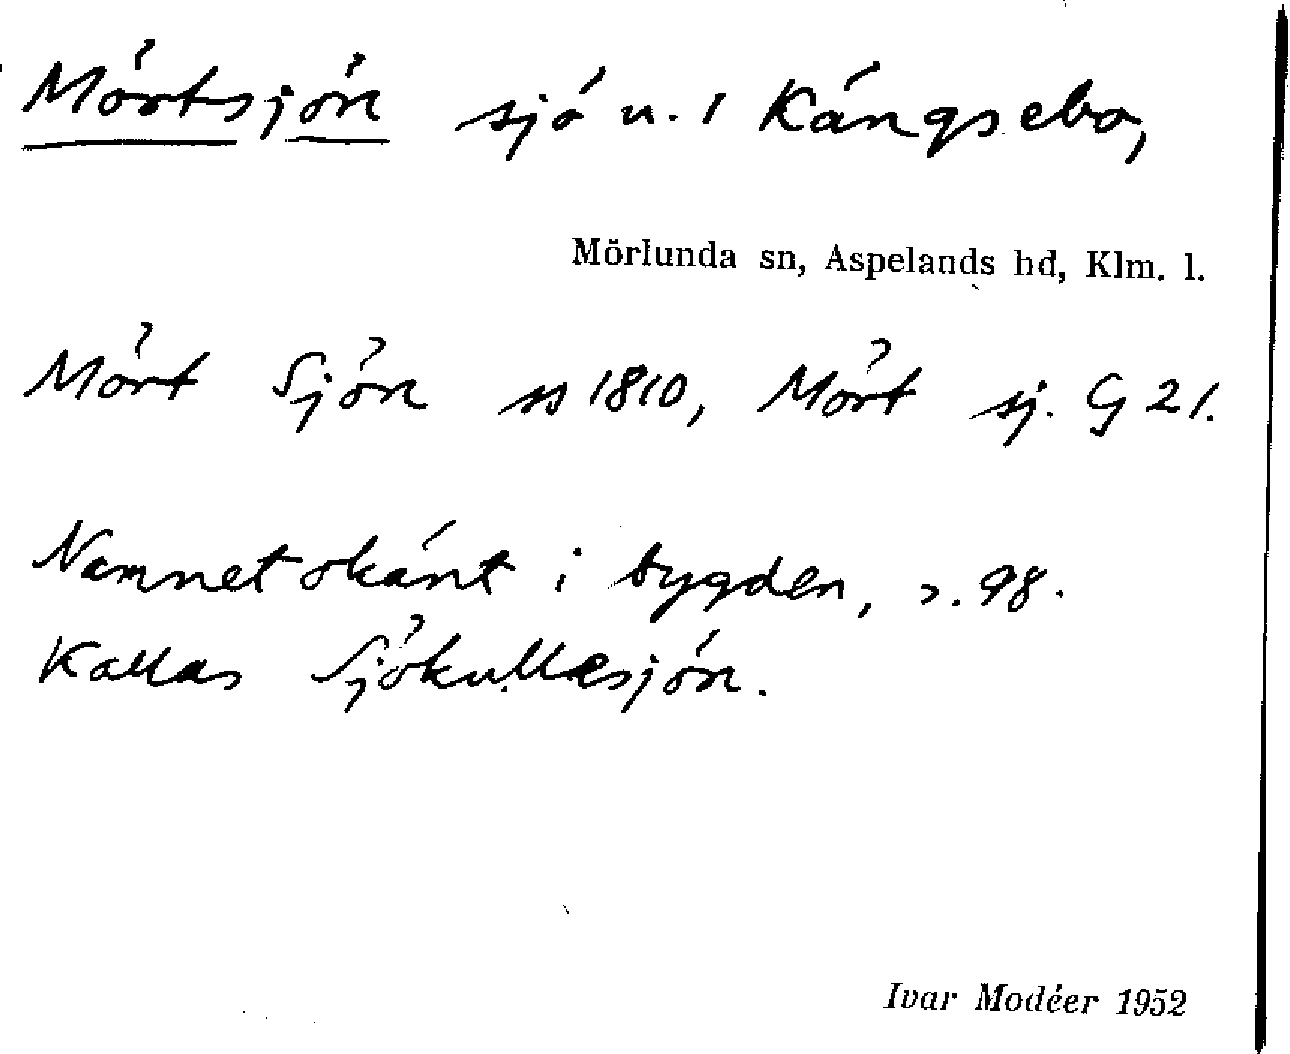 Mörtsjön sjö u. / Kängsebo,
Mörlunda sn, Aspelands hd, Klm. l.
Mört Sjön ss 1810, Mört sj. G 21.
Namnet okänt i bygden, s. 98.
Kallas Sjökullesjön.
Ivar Modéer 1952